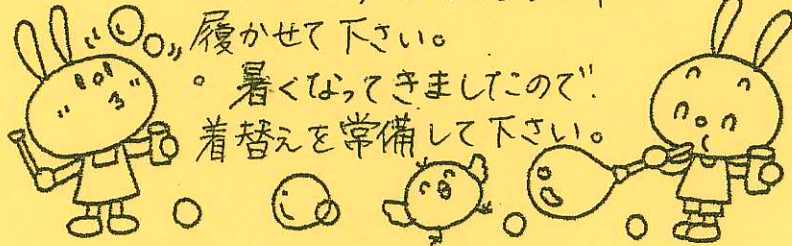 履かせて下さい。
。暑くなってきましたので、
着替えを常備して下さい。